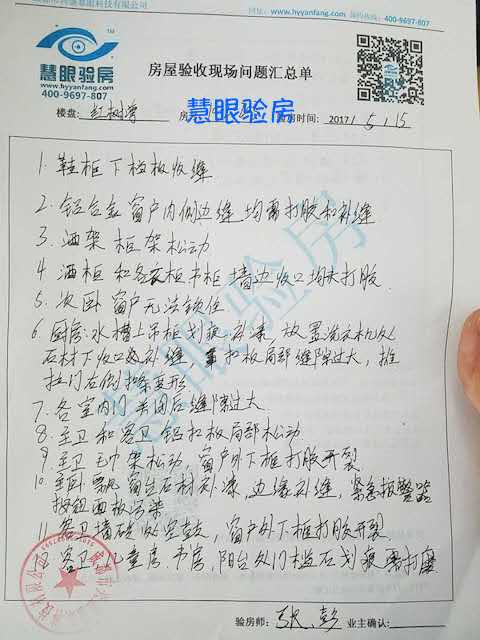 网址：www.hyyanfang.com 预约热线：400-9697-807
慧眼验房
www.hyyanfang.com
400-9697-807
房屋验收现场问题汇总单
楼盘：红树湾
慧眼验房
验房时间：2017 / 5 / 15
1. 鞋柜下档板收缝
2. 铝合金窗户内侧边缝均需打胶和补缝
3. 酒架柜架松动
4. 酒柜和各衣柜书柜墙边收口均未打胶
5. 次卧窗户无法锁住
6. 厨房:水槽上吊柜划痕补漆，放置洗衣机处
石材下收口处补缝，扣板局部缝隙过大，推
拉门右侧扣条变形
7. 各室内门关闭后缝隙过大
8. 主卫和客卫铝扣板局部松动
9. 主卫毛巾架松动，窗户外下框打胶开裂
10. 主卧飘窗台石材补漆，边缘补缝，紧急报警器
按钮面板污染
11. 客卫墙砖处空鼓，窗户外下框打胶开裂
12. 客卫、儿童房、书房，阳台处门槛石划痕需打磨
慧眼验房
验房师：张彭 业主确认：